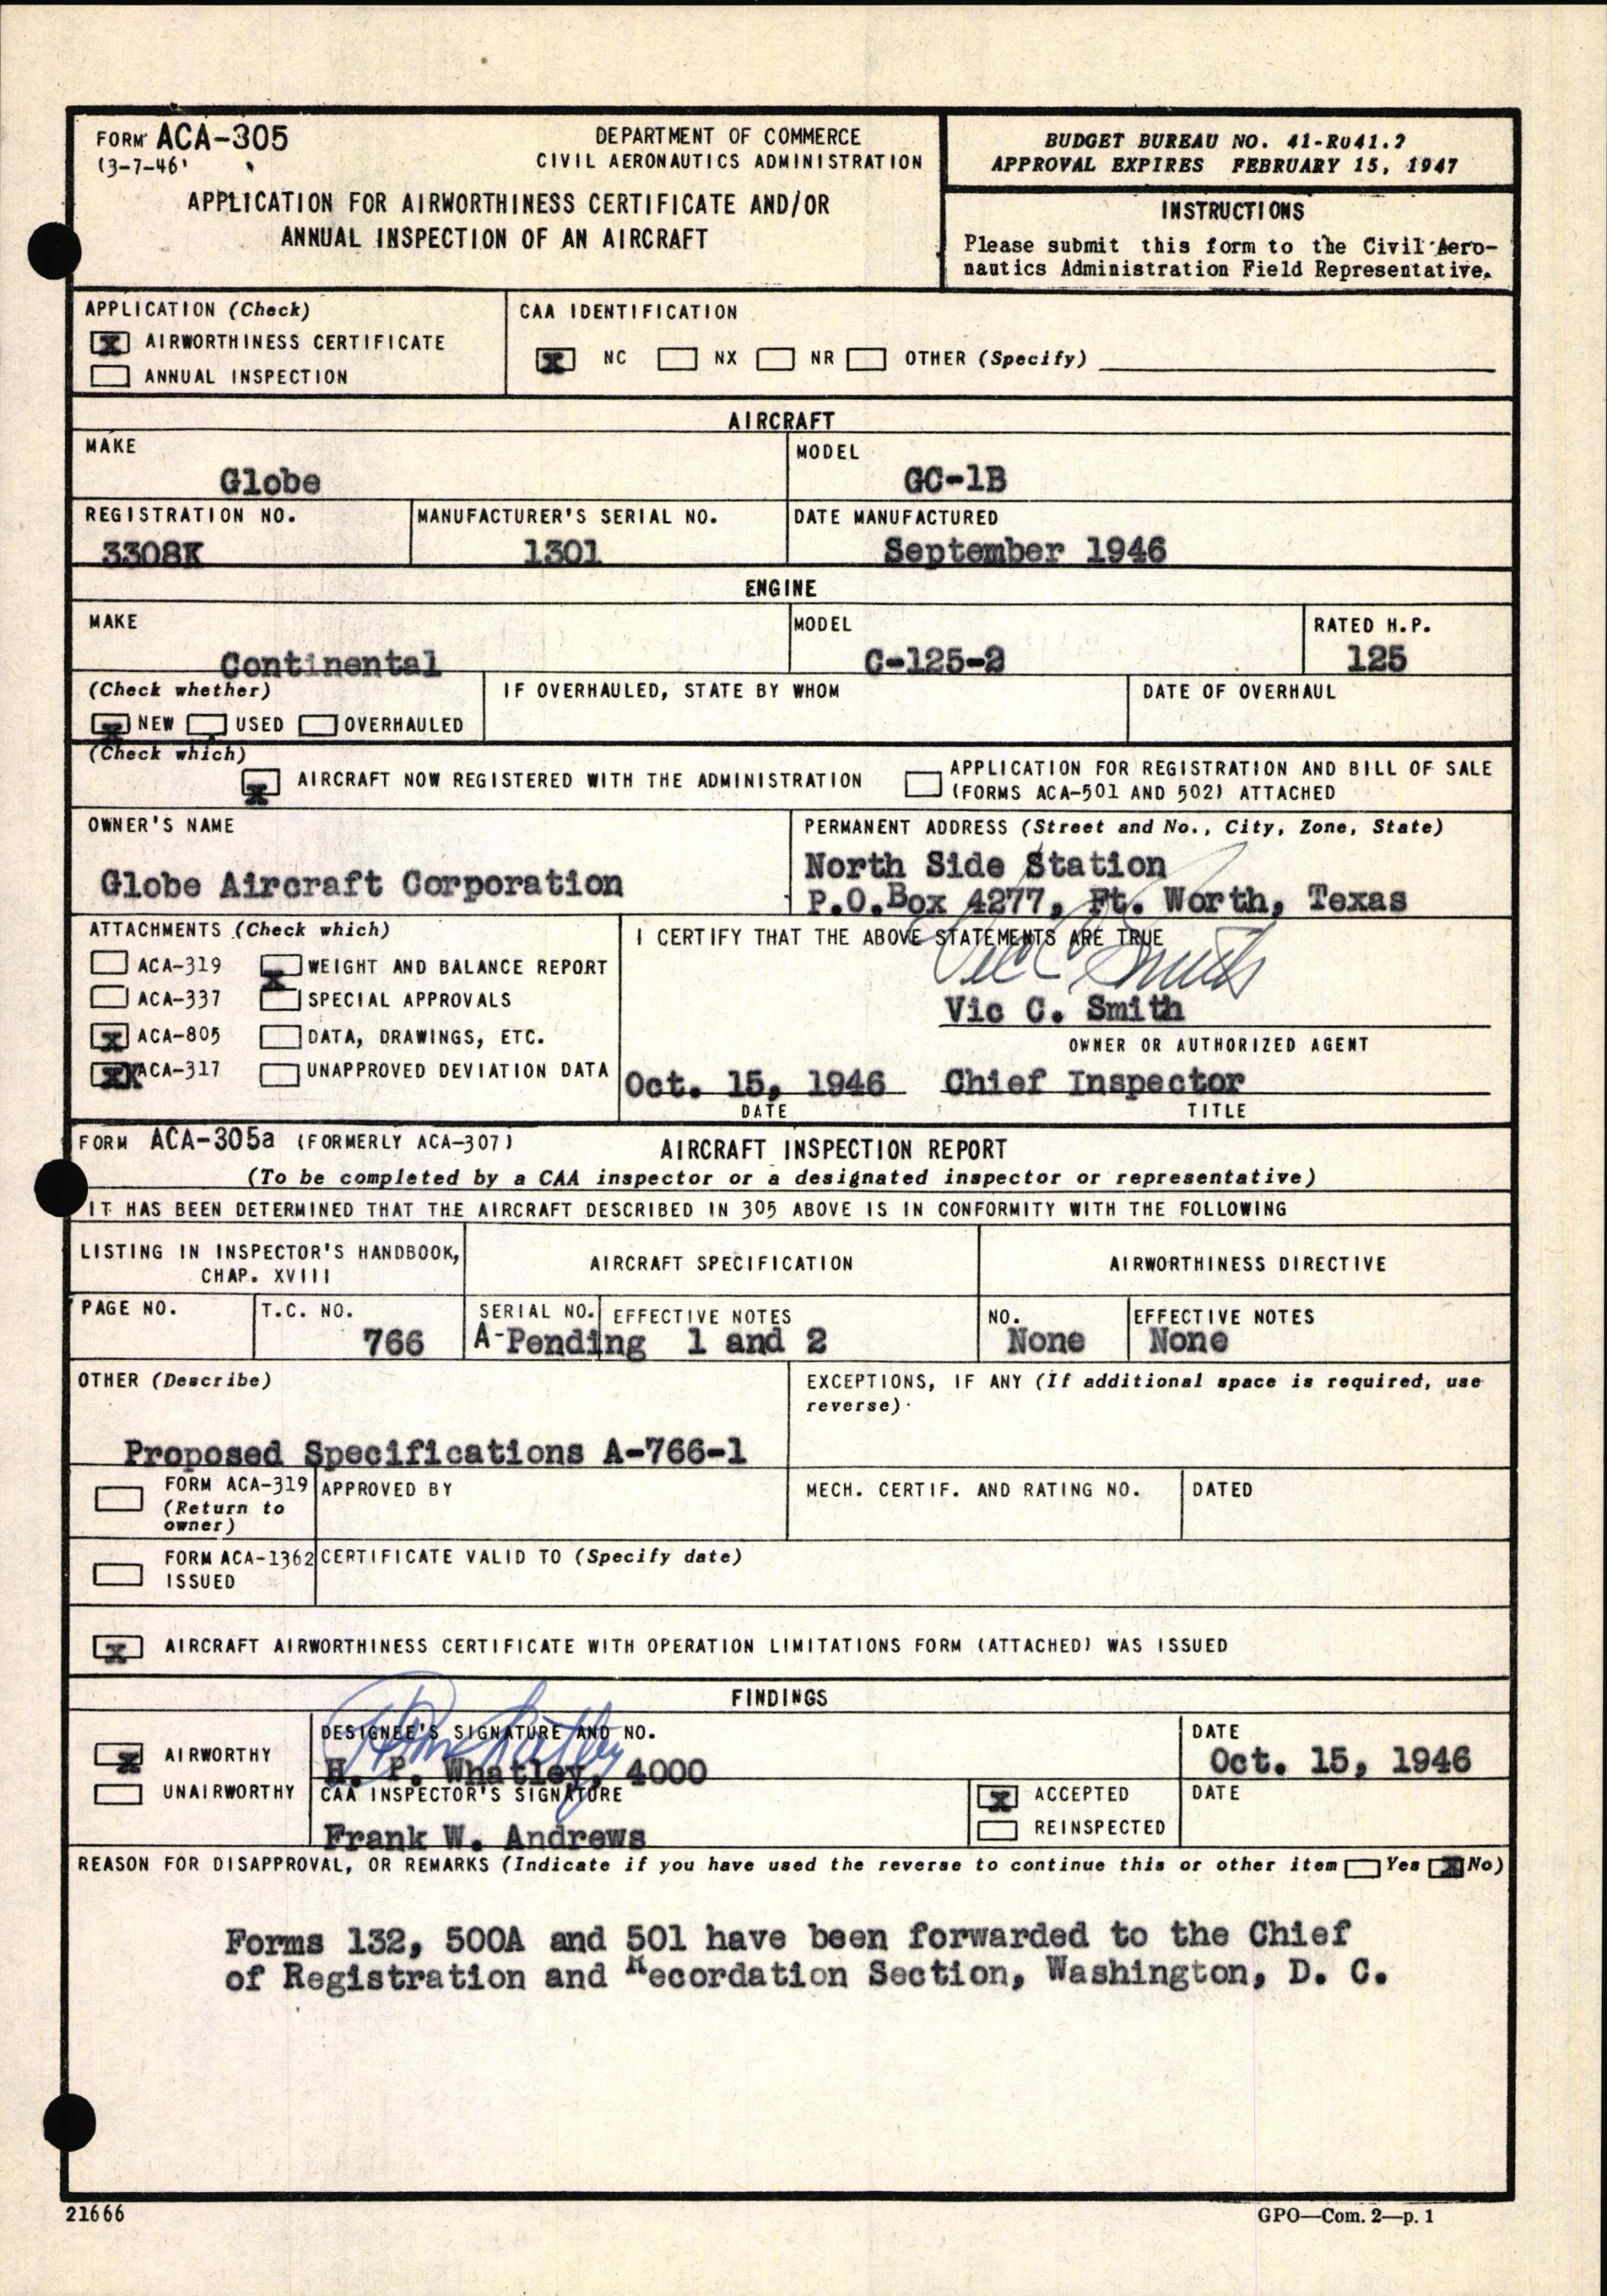 FORM ACA-305
(3-7-46)
DEPARTMENT OF COMMERCE
CIVIL AERONAUTICS ADMINISTRATION
APPLICATION FOR AIRWORTHINESS CERTIFICATE AND/OR
ANNUAL INSPECTION OF AN AIRCRAFT
BUDGET BUREAU NO. 41-R041.2
APPROVAL EXPIRES FEBRUARY 15, 1947
INSTRUCTIONS
Please submit this form to the Civil Aero-
nautics Administration Field Representative.
APPLICATION (Check)
X AIRWORTHINESS CERTIFICATE
ANNUAL INSPECTION
CAA IDENTIFICATION
X NC NX NR OTHER (Specify)
AIRCRAFT
MAKE
Globe
MODEL
GC-1B
REGISTRATION NO.
3308K
MANUFACTURER'S SERIAL NO.
1301
DATE MANUFACTURED
September 1946
ENGINE
MAKE
Continental
MODEL
C-125-2
RATED H.P.
125
(Check whether)
X NEW USED OVERHAULED
IF OVERHAULED, STATE BY WHOM
DATE OF OVERHAUL
(Check which)
X AIRCRAFT NOW REGISTERED WITH THE ADMINISTRATION
APPLICATION FOR REGISTRATION AND BILL OF SALE
(FORMS ACA-501 AND 502) ATTACHED
OWNER'S NAME
Globe Aircraft Corporation
PERMANENT ADDRESS (Street and No., City, Zone, State)
North Side Station
P.O.Box 4277, Ft. Worth, Texas
ATTACHMENTS (Check which)
ACA-319 X WEIGHT AND BALANCE REPORT
ACA-337 SPECIAL APPROVALS
X ACA-805 DATA, DRAWINGS, ETC.
XX ACA-317 UNAPPROVED DEVIATION DATA
I CERTIFY THAT THE ABOVE STATEMENTS ARE TRUE
Vic C Smith
Vic C. Smith
OWNER OR AUTHORIZED AGENT
Oct. 15, 1946 Chief Inspector
DATE TITLE
FORM ACA-305a (FORMERLY ACA-307) AIRCRAFT INSPECTION REPORT
(To be completed by a CAA inspector or a designated inspector or representative)
IT HAS BEEN DETERMINED THAT THE AIRCRAFT DESCRIBED IN 305 ABOVE IS IN CONFORMITY WITH THE FOLLOWING
LISTING IN INSPECTOR'S HANDBOOK,
CHAP. XVIII
AIRCRAFT SPECIFICATION
AIRWORTHINESS DIRECTIVE
PAGE NO.
T.C. NO.
766
SERIAL NO. EFFECTIVE NOTES
A-Pending 1 and 2
NO.
None
EFFECTIVE NOTES
None
OTHER (Describe)
Proposed Specifications A-766-1
EXCEPTIONS, IF ANY (If additional space is required, use
reverse)
FORM ACA-319
(Return to
owner)
APPROVED BY
MECH. CERTIF. AND RATING NO.
DATED
FORM ACA-1362
ISSUED
CERTIFICATE VALID TO (Specify date)
X AIRCRAFT AIRWORTHINESS CERTIFICATE WITH OPERATION LIMITATIONS FORM (ATTACHED) WAS ISSUED
FINDINGS
X AIRWORTHY
UNAIRWORTHY
DESIGNEE'S SIGNATURE AND NO.
HP Whatley
H. P. Whatley, 4000
DATE
Oct. 15, 1946
CAA INSPECTOR'S SIGNATURE
Frank W. Andrews
X ACCEPTED
REINSPECTED
DATE
REASON FOR DISAPPROVAL, OR REMARKS (Indicate if you have used the reverse to continue this or other item Yes X No)
Forms 132, 500A and 501 have been forwarded to the Chief
of Registration and Recordation Section, Washington, D. C.
21666
GPO—Com. 2—p. 1